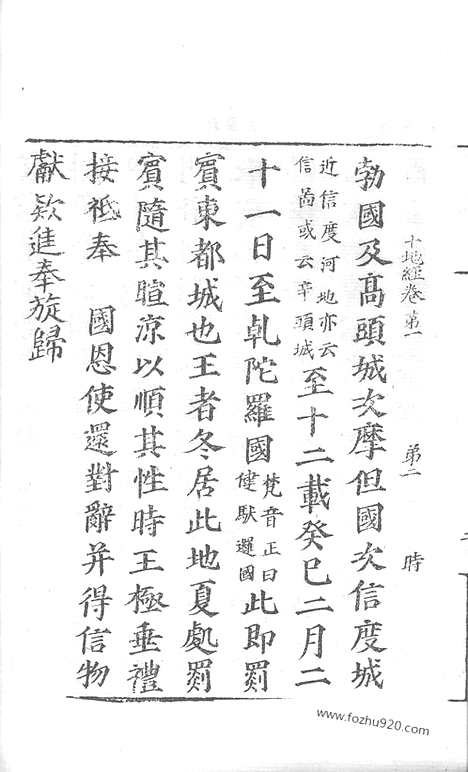 十地經卷第一 第二 時
勃國及髙頭城次摩但國次信度城
近信度河地亦云
信啚或云辛頭城
至十二載癸巳二月二
十一日至乹陀羅國
梵音正曰
健馱邏國
此即罽
賓東都城也王者冬居此地夏處罽
賓隨其暄涼以順其性時王極垂禮
接祗奉 國恩使還對辭并得信物
獻欵進奉旋歸
www.fozhu920.com